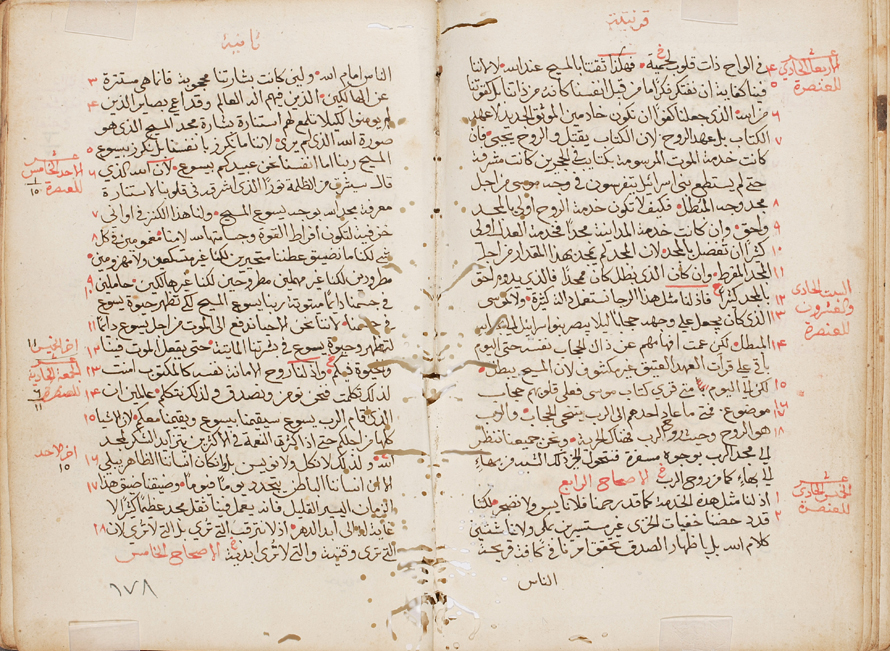 قرنتية
في الواح ذات قلوب لحمية فهكذا ثقتنا بالمسيح عند الله لا لاننا
فينا كفاية ان نفتكر فكرا ما من قبل انفسنا كانه من ذاتنا بل كفوتنا
من الله الذي جعلنا كفوا ان نكون خادمين الموثق الجديد لا بعهد
الكتاب بل بعهد الروح لان الكتاب يقتل والروح يحيي فان
كانت خدمة الموت المرسومة بكتاب في الحجرين كانت مشرفة
حتى لم يستطع بني اسرائيل يتفرسون في وجه موسى من اجل
مجد وجهه المتطل فكيف لا تكون خدمة الروح اولى بالمجد
واحق وان كانت خدمة المداينة مجدا فخدمة العدل اولى
كثيرا ان تفضل بالمجد لان المجد لم يمجد بهذا المقدار من اجل
المجد المفرط وان كان الذي يبطل كان مجدا فالذي يدوم احق
بالمجد كثيرا فاذ لنا مثل هذا الرجا نستعمل الدالة كثيرة ولا كموسى
الذي كان يجعل على وجهه حجابا ليلا يبصر بنو اسرايل
المبطل لكن عمت افهامهم عن ذاك لان الحجاب نفسه حتى اليوم
باق على قرات العهد العتيق غير مكشوف لان المسيح يبطله
لكن الى اليوم متى قرى كتاب موسى فعلى قلوبهم حجاب
موضوع فمتى ما عاد احدهم الى الرب ينتحي الحجاب والرب
هو الروح وحيث روح الرب فهناك الحرية ونحن جميعنا ننظر
الى مجد الرب بوجوه مسفرة فنتحول الى تلك الشبه من بهاء
الى بهاء كما من روح الرب الاصحاح الرابع
اذ لنا مثل هذه الخدمة كما قد رحمنا فلا نايس ولا نضجر لكنا
قد رحضنا خفيات الخزي غير مستسيرين بمكر ولا ناغشين
كلام الله بل باظهار الصدق نحقق امرنا في كافة قريحة
الناس
اربعا الحادي
للعنصرة
السبت الحادي
والعشرون
للعنصرة
الخميس الحادي
للعنصرة
ثانية
الناس امام الله ولين كانت بشارتنا محجوبة فانما هي مستترة
عن الهالكين الذين فيهم اله العالم وقد اعمى بصاير الذين
لم يومنوا كيلا تلمع لهم استنارة بشارة مجد المسيح الذي هو
صورة الله الذي لم يرى لاننا ما نكرز بانفسنا بل نكرز بيسوع
المسيح ربنا اما انفسنا نحن عبيدكم بيسوع لان الله الذي
قال سيشرق من الظلمة نورا الذي اشرق في قلوبنا لاستنارة
معرفة مجد الله بوجه يسوع المسيح ولنا هذا الكنز في اواني
خزفية لتكون افراط القوة وجسامتها لله لا منا مغمومين في كل
شي لكنا ما تضيق عطننا متحيرين لكنا غير متسكعين ولا مهزومين
مطرودين لكنا غير مهملين مطروحين لكنا غير هالكين حاملين
في جسمنا دايما ميتوتة ربنا يسوع المسيح لكي تظهر حيوة يسوع
في جسمنا لاننا نحن الاحيا ندفع الى الموت من اجل يسوع دايما
لتظهر وحيوة يسوع في بشرتنا المايتة حتى يفعل الموت فينا
والحيوة فيكم واذ لنا روح الامانة نفسه كالمكتوب امنت
لذلك تكلمت فنحن نومن ونصدق ولذلك نتكلم عالمين ان
الذي اقام الرب يسوع سيقيمنا بيسوع ويقيمنا معكم لان الاشيا
كلها من اجلكم حتى اذا اكثرت النعمة في الاكثرين يتزايد الشكر لمجد
الله ولذلك لا نكل ولا نويس بل وان كان انساننا الظاهر يبلى
الا ان انساننا الباطن يتجدد يوما فيوما وضيقنا ضيق هذا
الزمان اليسير القليل فانه يعمل فينا ثقل مجد عظما كثيرا لا
غاية له الى ابد الدهر اذ لا نترقب التي ترى بل التي لا ترى لان
التي ترى وقتية والتي لا ترى ابدية الاصحاح الخامس
١٧٨
الاحد الخامس
للعنصرة
اخر الخميس
الجمعة الحادية
للعنصرة
اخر الاحد